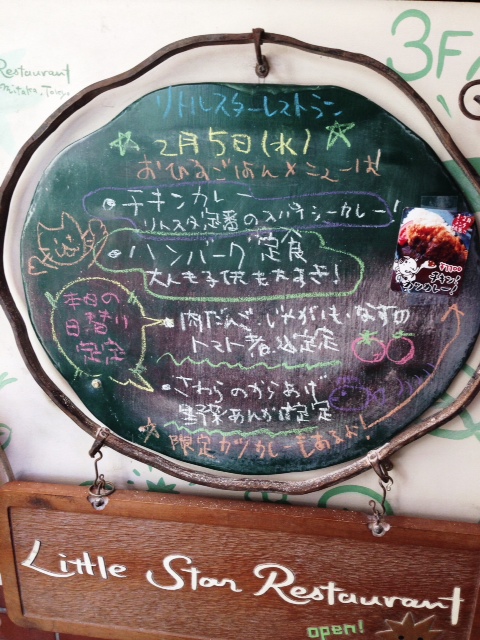 Restaurant
Mitaka, Tokyo
3F
リトルスターレストラン
2月5日(水)
おひるごはんメニューは
・チキンカレー
リトスタ定番のスパイシーカレー!
・ハンバーグ定食
大人も子供も大すき!
本日の
日替り
定定
・肉だんご・じゃがいも・なすの
トマト煮込定定
・さわらのからあげ
野菜あんかけ定定
☆限定カツカレーもあるよ!
チキン
カツカレー!
Little Star Restaurant
open!